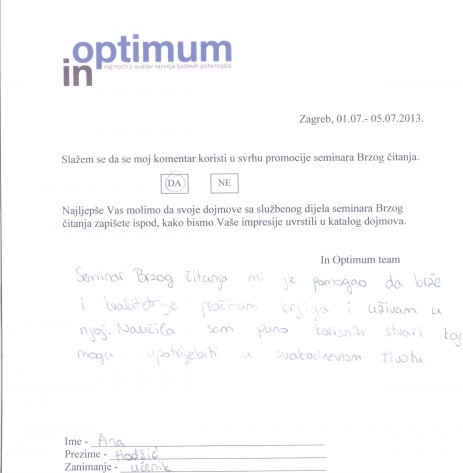 optimum
najmoćniji sustav razvoja ljudskih potencijala
in
Zagreb, 01.07.- 05.07.2013.
Slažem se da se moj komentar koristi u svrhu promocije seminara Brzog čitanja.
DA NE
Najljepše Vas molimo da svoje dojmove sa službenog dijela seminara Brzog
čitanja zapišete ispod, kako bismo Vaše impresije uvrstili u katalog dojmova.
In Optimum team
Seminar Brzog čitanja mi je pomogao da brže
i kvalitetnije pročitam knjigu i uživam u
njoj. Naučila sam puno korisnih stvari koj
mogu upotrijebiti u svakodnevnom životu.
Ime - Ana
Prezime - Hodžić
Zanimanje - učenik